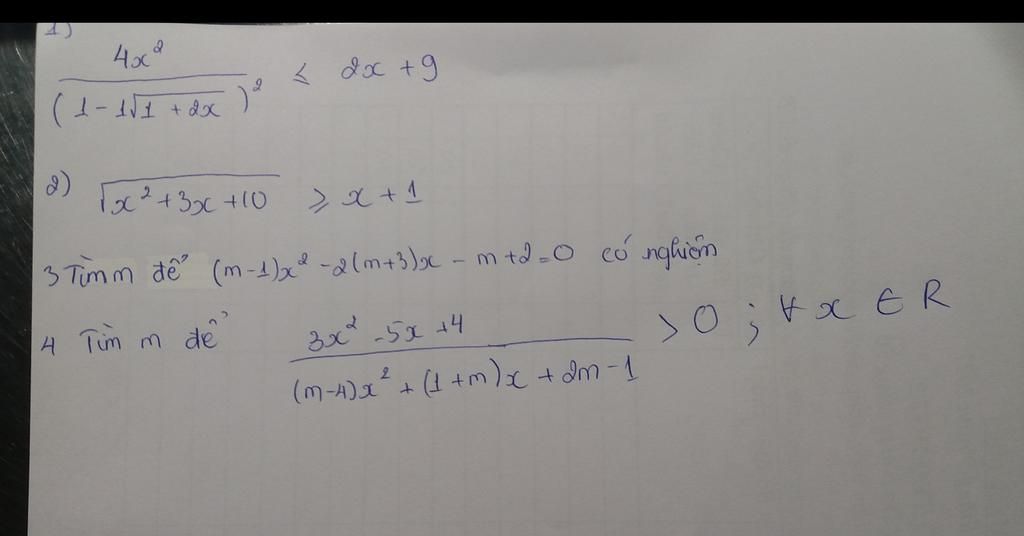 1)
4x²/(1-1√(1+2x))² ≤ 2x+9
2) √(x²+3x+10) ≥ x+1
3 Tìm m để (m-1)x² -2(m+3)x - m+2=0 có nghiệm
4 Tìm m để (3x²-5x+4)/((m-4)x²+(1+m)x+2m-1) > 0 ; ∀ x ∈ R